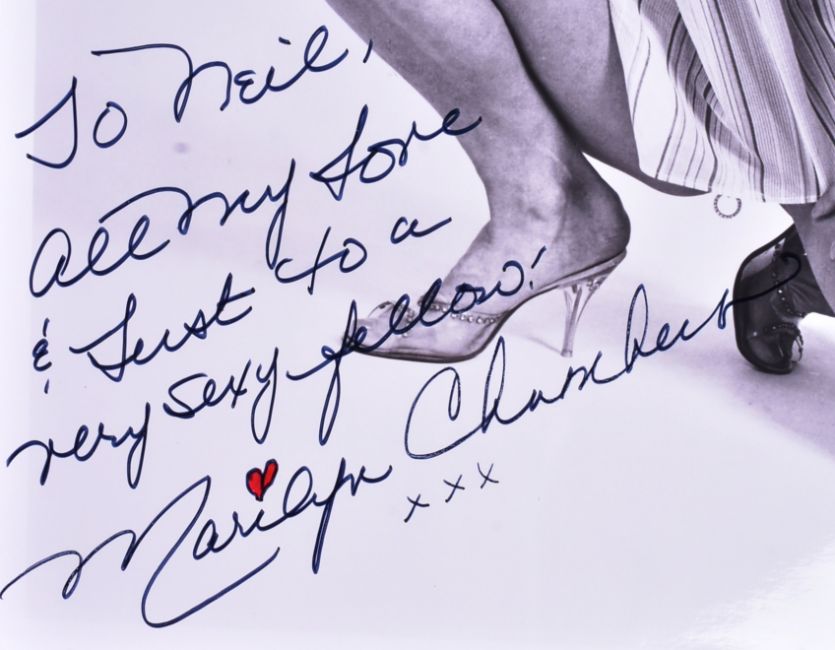 To Neil,
All My Love
& Lust to a
very sexy fellow!
Marilyn Chambers
xxx